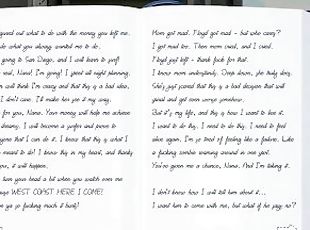 gured out what to do with the money you left me.
do what you always wanted me to do.
going to San Diego, and I will learn to surf!
real, Nana! I'm going! I spent all night planning,
will think I'm crazy and that this is a bad idea,
I don't care. I'll make her see it my way.
for you, Nana. Your money will help me achieve
dreams. I will become a surfer and prove to
that I can do it. I know that this is what I
meant to do! I know this in my heart, and thanks
you, it will happen.
hear a bit when you watch over me
WEST COAST HERE I COME!
ya so fucking much it hurts!
Mom got mad. Floyd got mad - but who cares?
I got mad too. Then mom cried, and I cried.
Floyd just left - thank fuck for that.
I know mom understands. Deep down, she truly does.
She's just scared that this is a bad decision that will
and get even worse somehow.
But it's my life, and this is how I want to live it.
I want to do this. I need to do this. I need to feel
alive again. I'm so tired of feeling like a failure. Like
a fucking zombie wandering around in one spot.
You've given me a chance, Nana. And I'm taking it.
I don't know how I will tell him about it...
I want him to come with me, but what if he says no?